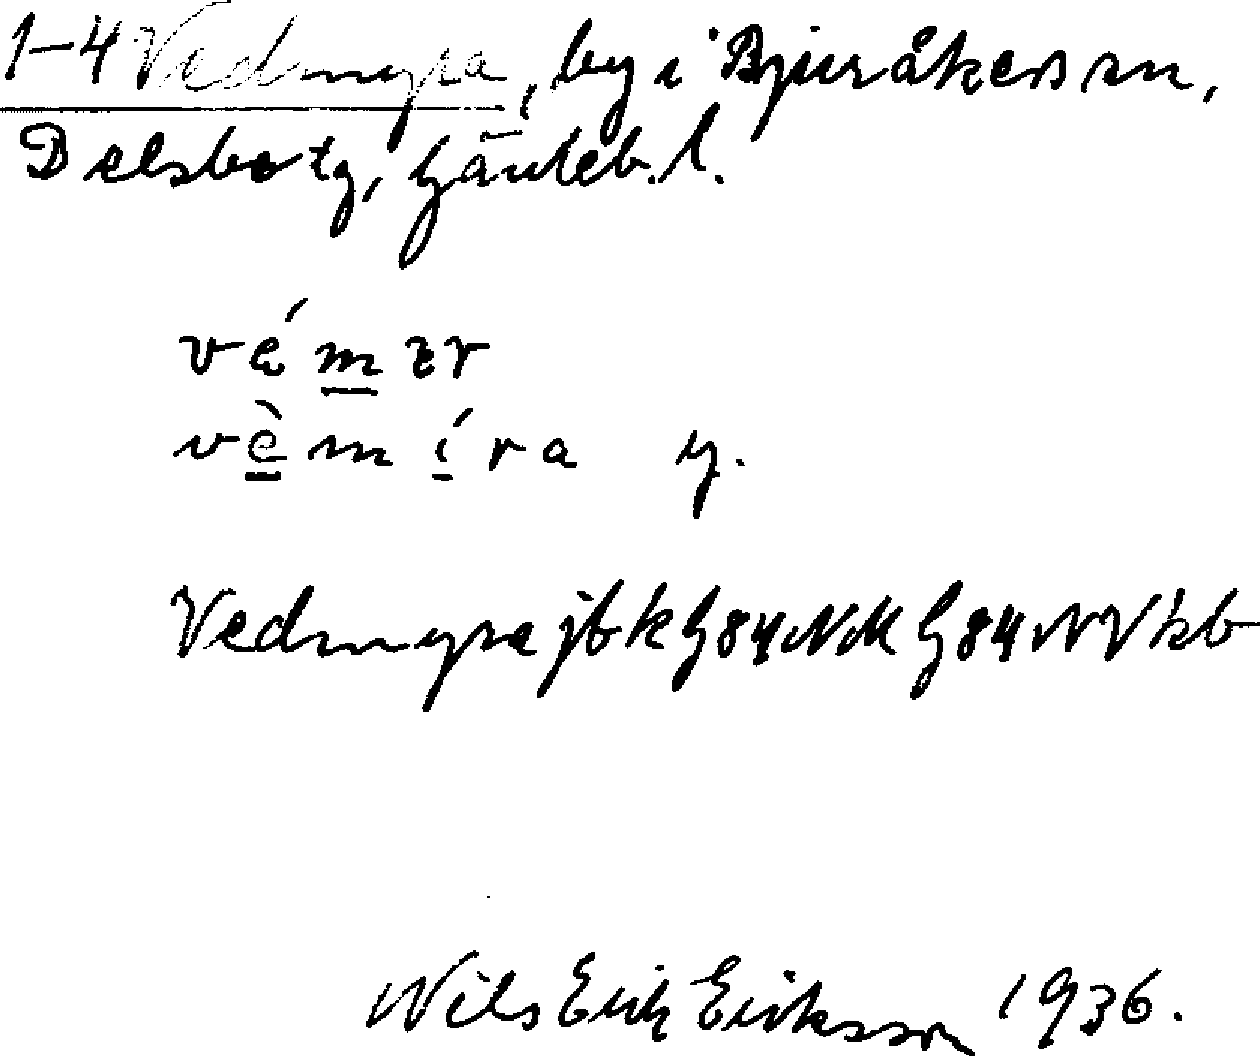 1-4 Vedmyra, by i Bjuråkers sn,
Delsbo tg, Gävleb. l.
vémer
vèmíra y.
Vedmyra jbk G84NM G84NV kb
Nils Erik Eriksson 1936.